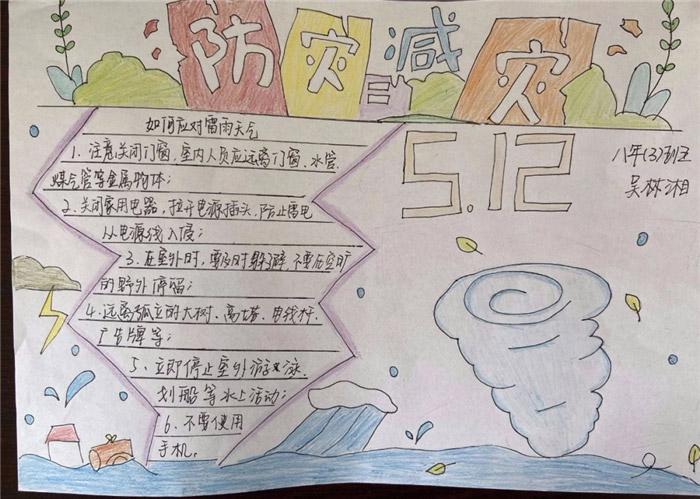 防灾减灾
5.12
八年(3)班
吴林湘
如何应对雷雨天气
1、注意关闭门窗,室内人员应远离门窗、水管、
煤气管等金属物体;
2、关闭家用电器,拉开电源插头,防止雷电
从电源线入侵;
3、在室外时,要及时躲避,不要在空旷
的野外停留;
4、远离孤立的大树、高塔、电线杆、
广告牌等;
5、立即停止室外游泳、
划船等水上活动;
6、不要使用
手机。